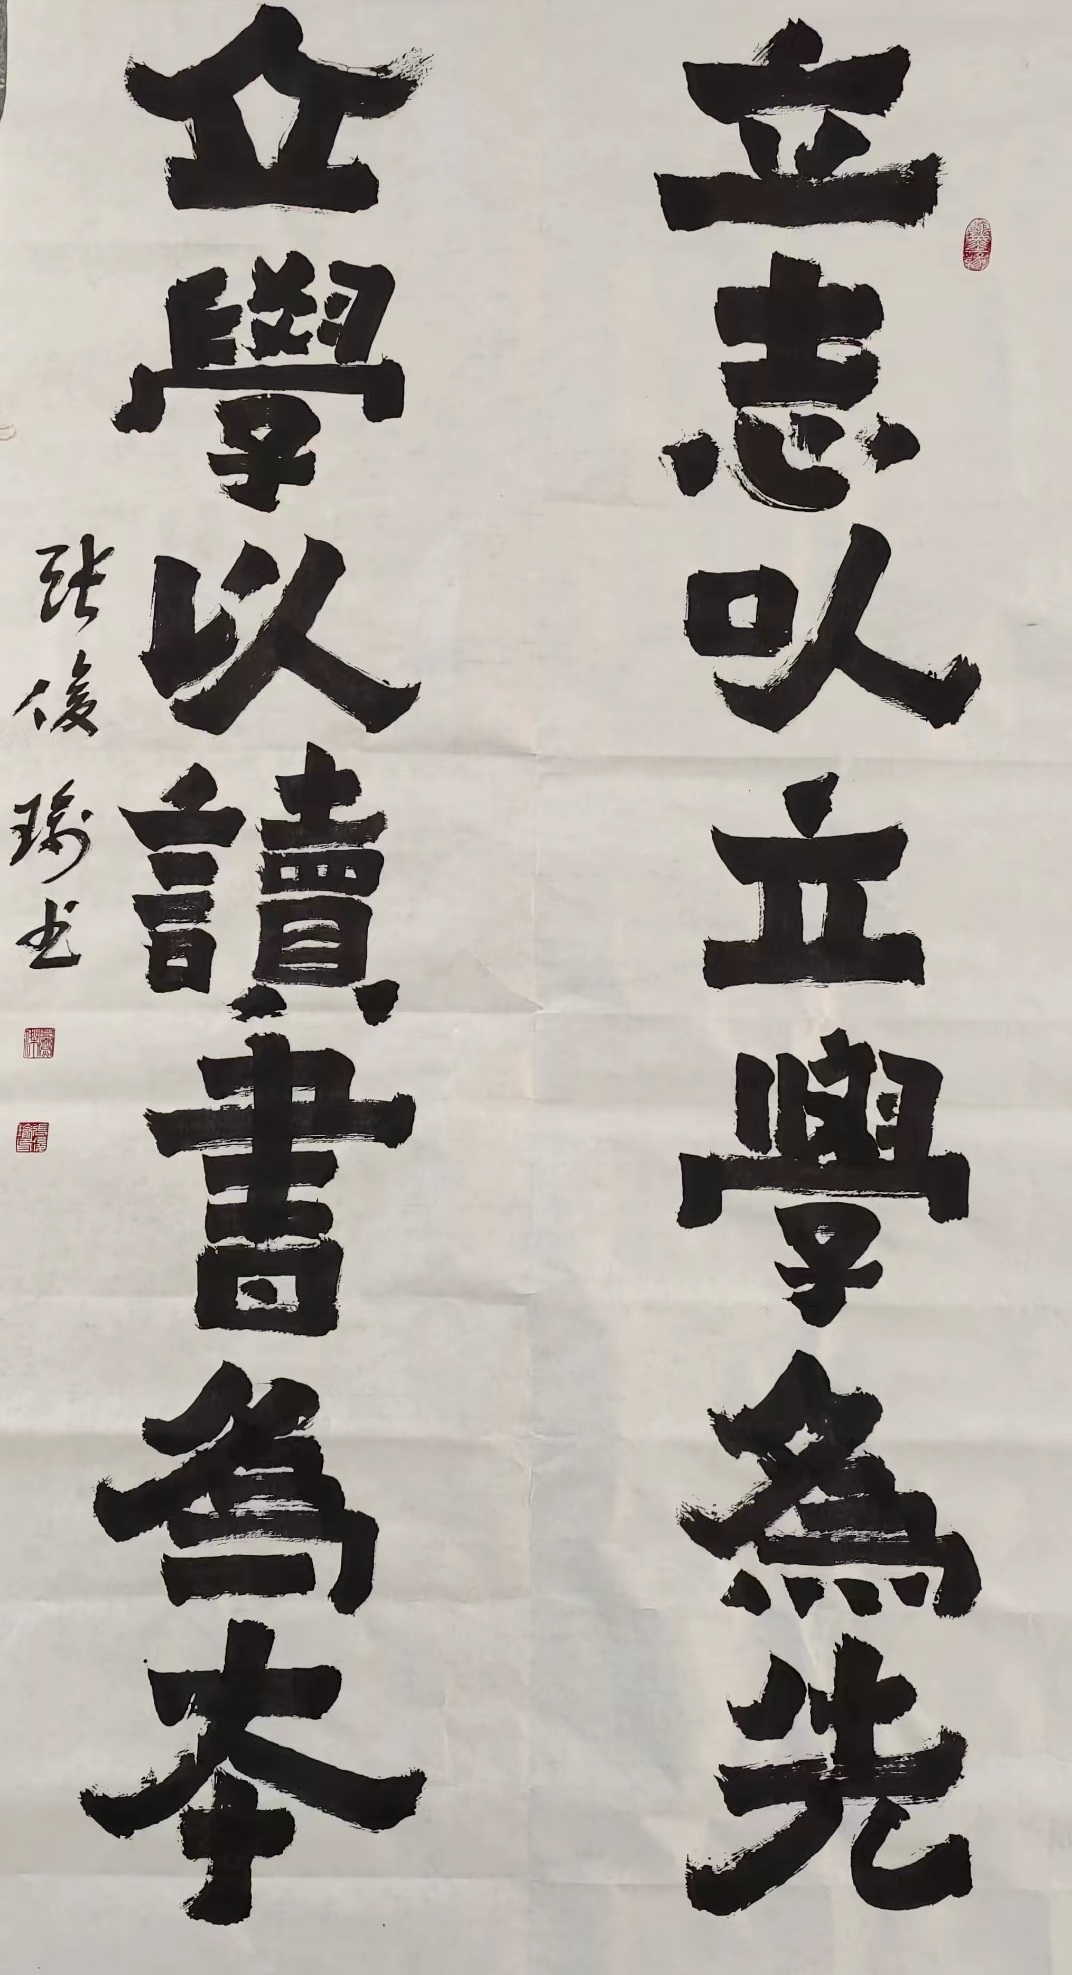 立志以立學為先
立學以讀書為本
張俊瑜书